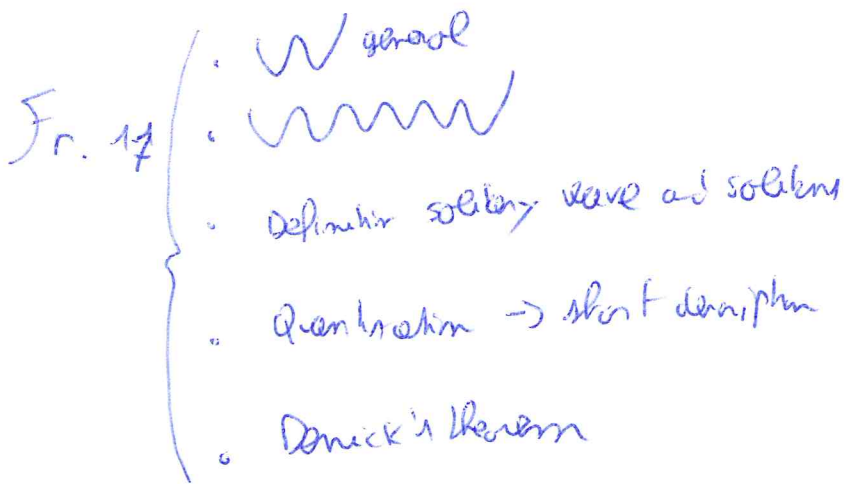 Fr. 17
general
Definition solitary wave and solitons
Quantisation → short description
Derrick's theorem